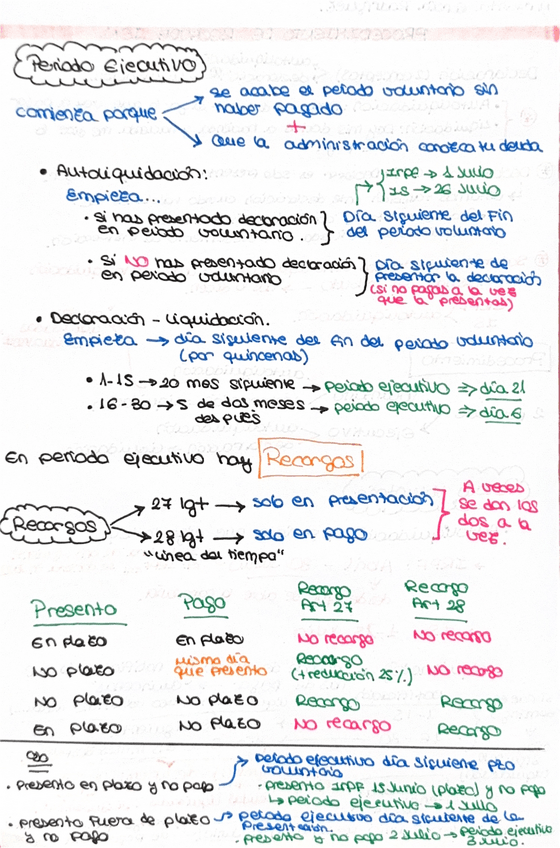 Periodo Ejecutivo
comienza porque
se acabe el periodo voluntario sin
haber pagado
+
Que la administración conozca tu deuda
• Autoliquidación:
Empieza...
IRPF → 1 Julio
IS → 26 Julio
• Si has presentado declaración
en periodo voluntario.
Día siguiente del Fin
del periodo voluntario
• Si NO has presentado declaración
en periodo voluntario
Día siguiente de
presentar la declaración
(si no pagas a la vez
que la presentas)
• Declaración - Liquidación.
Empieza → día siguiente del fin del periodo voluntario
(por quincenas)
• 1-15 → 20 mes siguiente → periodo ejecutivo => día 21
• 16-30 → 5 de dos meses → periodo ejecutivo => día 6
después
En periodo ejecutivo hay Recargos
Recargos
27 lgt → solo en presentación
28 lgt → solo en pago
"línea del tiempo"
A veces
se dan los
dos a la
vez.
Presento Pago Recargo Art 27 Recargo Art 28
En plazo En plazo No recargo No recargo
No plazo Mismo día que presento Recargo (+reducción 25%) No recargo
No plazo No plazo Recargo Recargo
En plazo No plazo No recargo Recargo
• Presento en plazo y no pago
periodo ejecutivo día siguiente pzo
voluntario
• presento IRPF 15 Junio (plazo) y no pago
↳ periodo ejecutivo → 1 Julio
• Presento Fuera de plazo
y no pago
→ periodo ejecutivo día siguiente de la
presentación.
• presento y no pago 2 Julio → periodo ejecutivo
3 Julio.